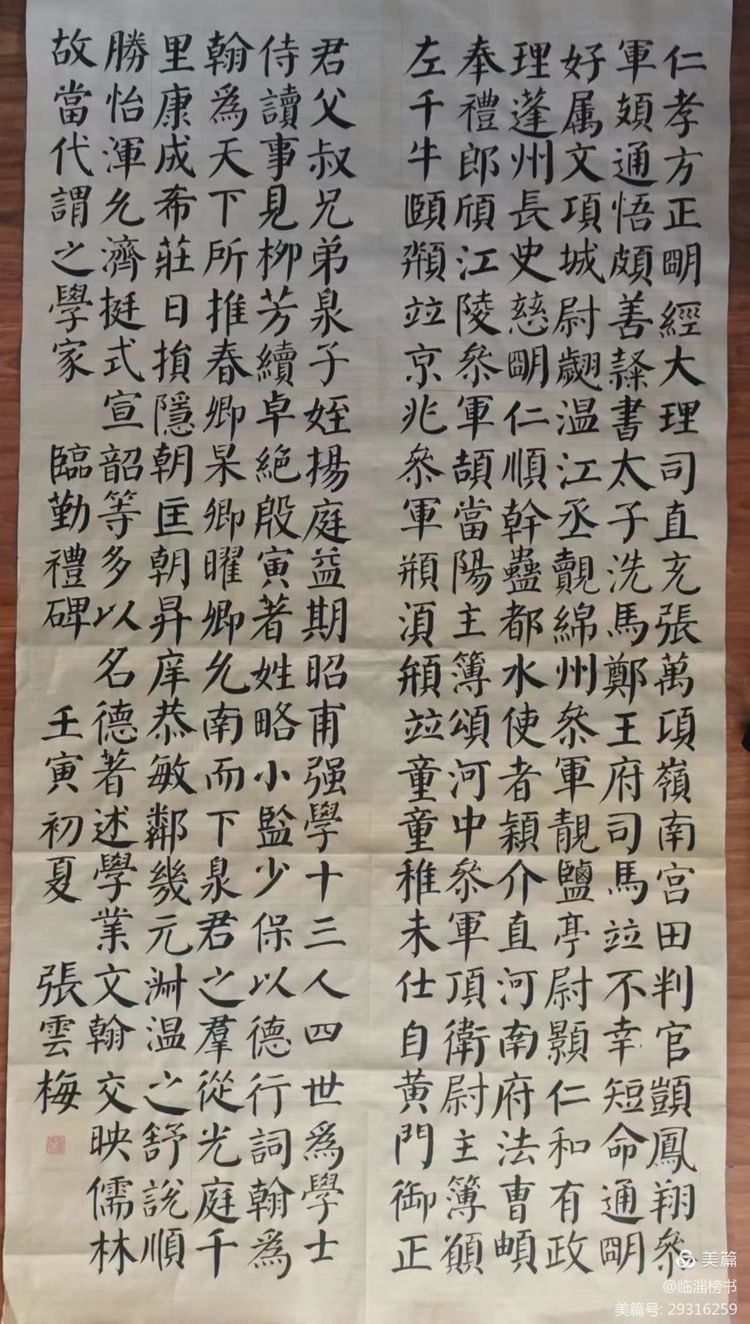 仁孝方正朙經大理司直充張萬項嶺南宮田判官顗鳳翔參
軍頗通悟頗善隸書太子洗馬鄭王府司馬竝不幸短命通朙
好属文項城尉翽温江丞覿綿州參軍靚鹽亭尉顥仁和有政
理蓬州長史慈朙仁順幹蠱都水使者穎介直河南府法曹頔
奉禮郎頎江陵參軍頡當陽主簿頌河中參軍頂衛尉主簿願
左千牛頤竝京兆參軍須竝童童稚未仕自黃門御正
君父叔兄弟泉子姪揚庭益期昭甫强學十三人四世爲學士
侍讀事見柳芳續卓絶殷寅著姓略小監少保以德行詞翰爲
翰爲天下所推春卿杲卿曜卿允南而下泉君之羣從光庭千
里康成希莊日損隱朝匡朝昇庠恭敏鄰幾元淵温之舒說順
勝怡渾允濟挺式宣韶等多以名德著述學業文翰交映儒林
故當代謂之學家 臨勤禮碑 壬寅初夏 張雲梅
美篇
@临淄榜书
美篇号: 29316259